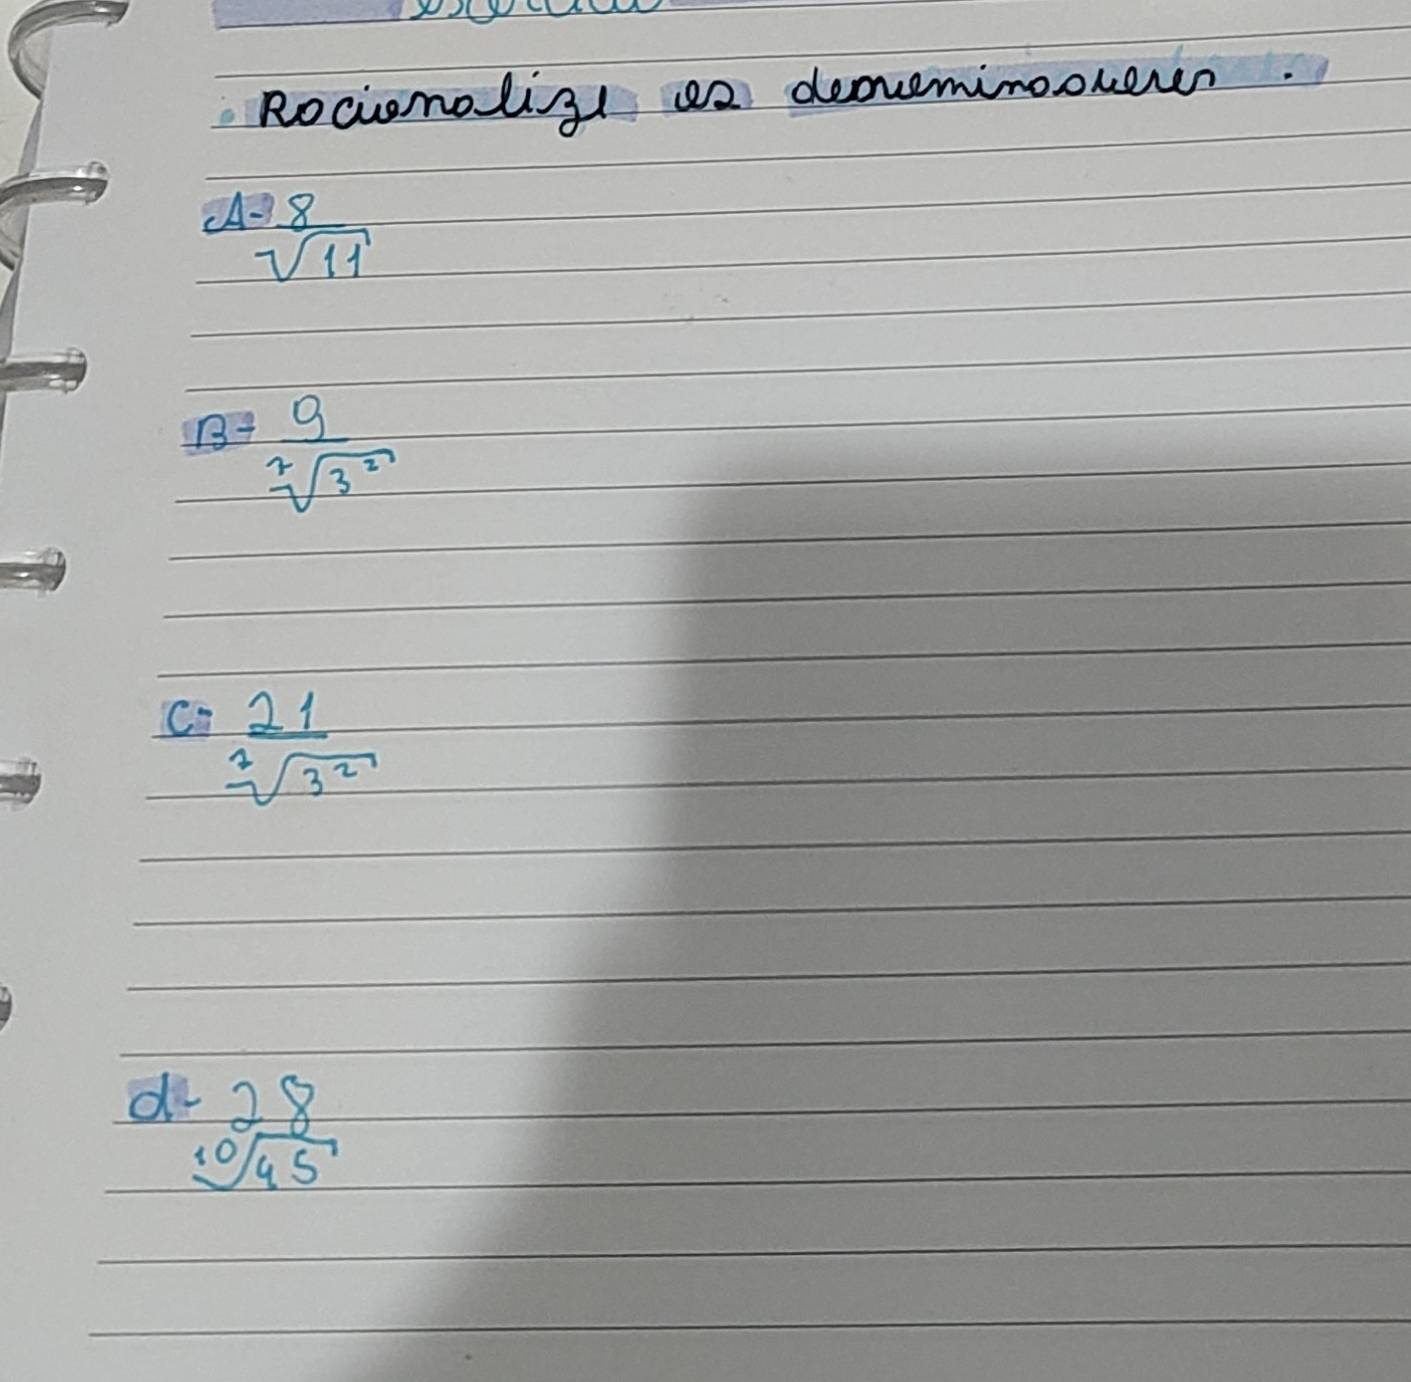 • Racionalize os denominadores.
A- 8/√11
B- 9/⁷√3²
C- 21/⁷√3²
d- 28/¹⁰√45